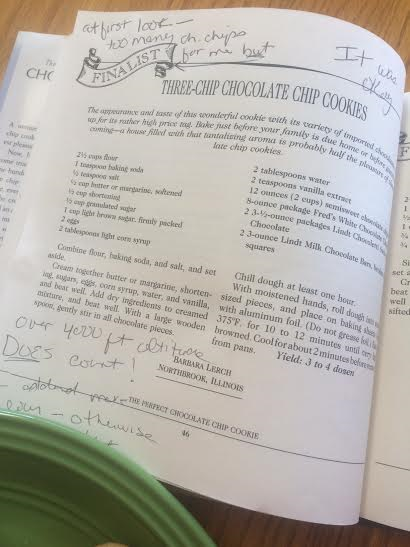 at first look –
too many ch. chips
for me but
It was
okay
FINALIST
THREE-CHIP CHOCOLATE CHIP COOKIES
The appearance and taste of this wonderful cookie with its variety of imported chocolate
up for its rather high price tag. Bake just before your family is due home or before
coming—a house filled with that tantalizing aroma is probably half the pleasure of
late chip cookies.
2½ cups flour
1 teaspoon baking soda
½ teaspoon salt
½ cup butter or margarine, softened
½ cup shortening
½ cup granulated sugar
1 cup light brown sugar, firmly packed
2 eggs
2 tablespoons light corn syrup
2 tablespoons water
2 teaspoons vanilla extract
12 ounces (2 cups) semisweet chocolate
8-ounce package Fred's White Chocolate
2 3-½-ounce packages Lindt Chocoletti
Chocolate
2 3-ounce Lindt Milk Chocolate Bars,
squares
Combine flour, baking soda, and salt, and set
aside.
Cream together butter or margarine, shorten-
ing, sugars, eggs, corn syrup, water, and vanilla,
and beat well. Add dry ingredients to creamed
mixture, and beat well. With a large wooden
spoon, gently stir in all chocolate pieces.
Chill dough at least one hour.
With moistened hands, roll dough into
sized pieces, and place on baking sheets
with aluminum foil. (Do not grease foil.)
375°F. for 10 to 12 minutes until
browned. Cool for about 2 minutes before
from pans.
Yield: 3 to 4 dozen
over 4000 ft altitude
DOES
count!
BARBARA LERCH
NORTHBROOK, ILLINOIS
– otherwise
THE PERFECT CHOCOLATE CHIP COOKIE
46